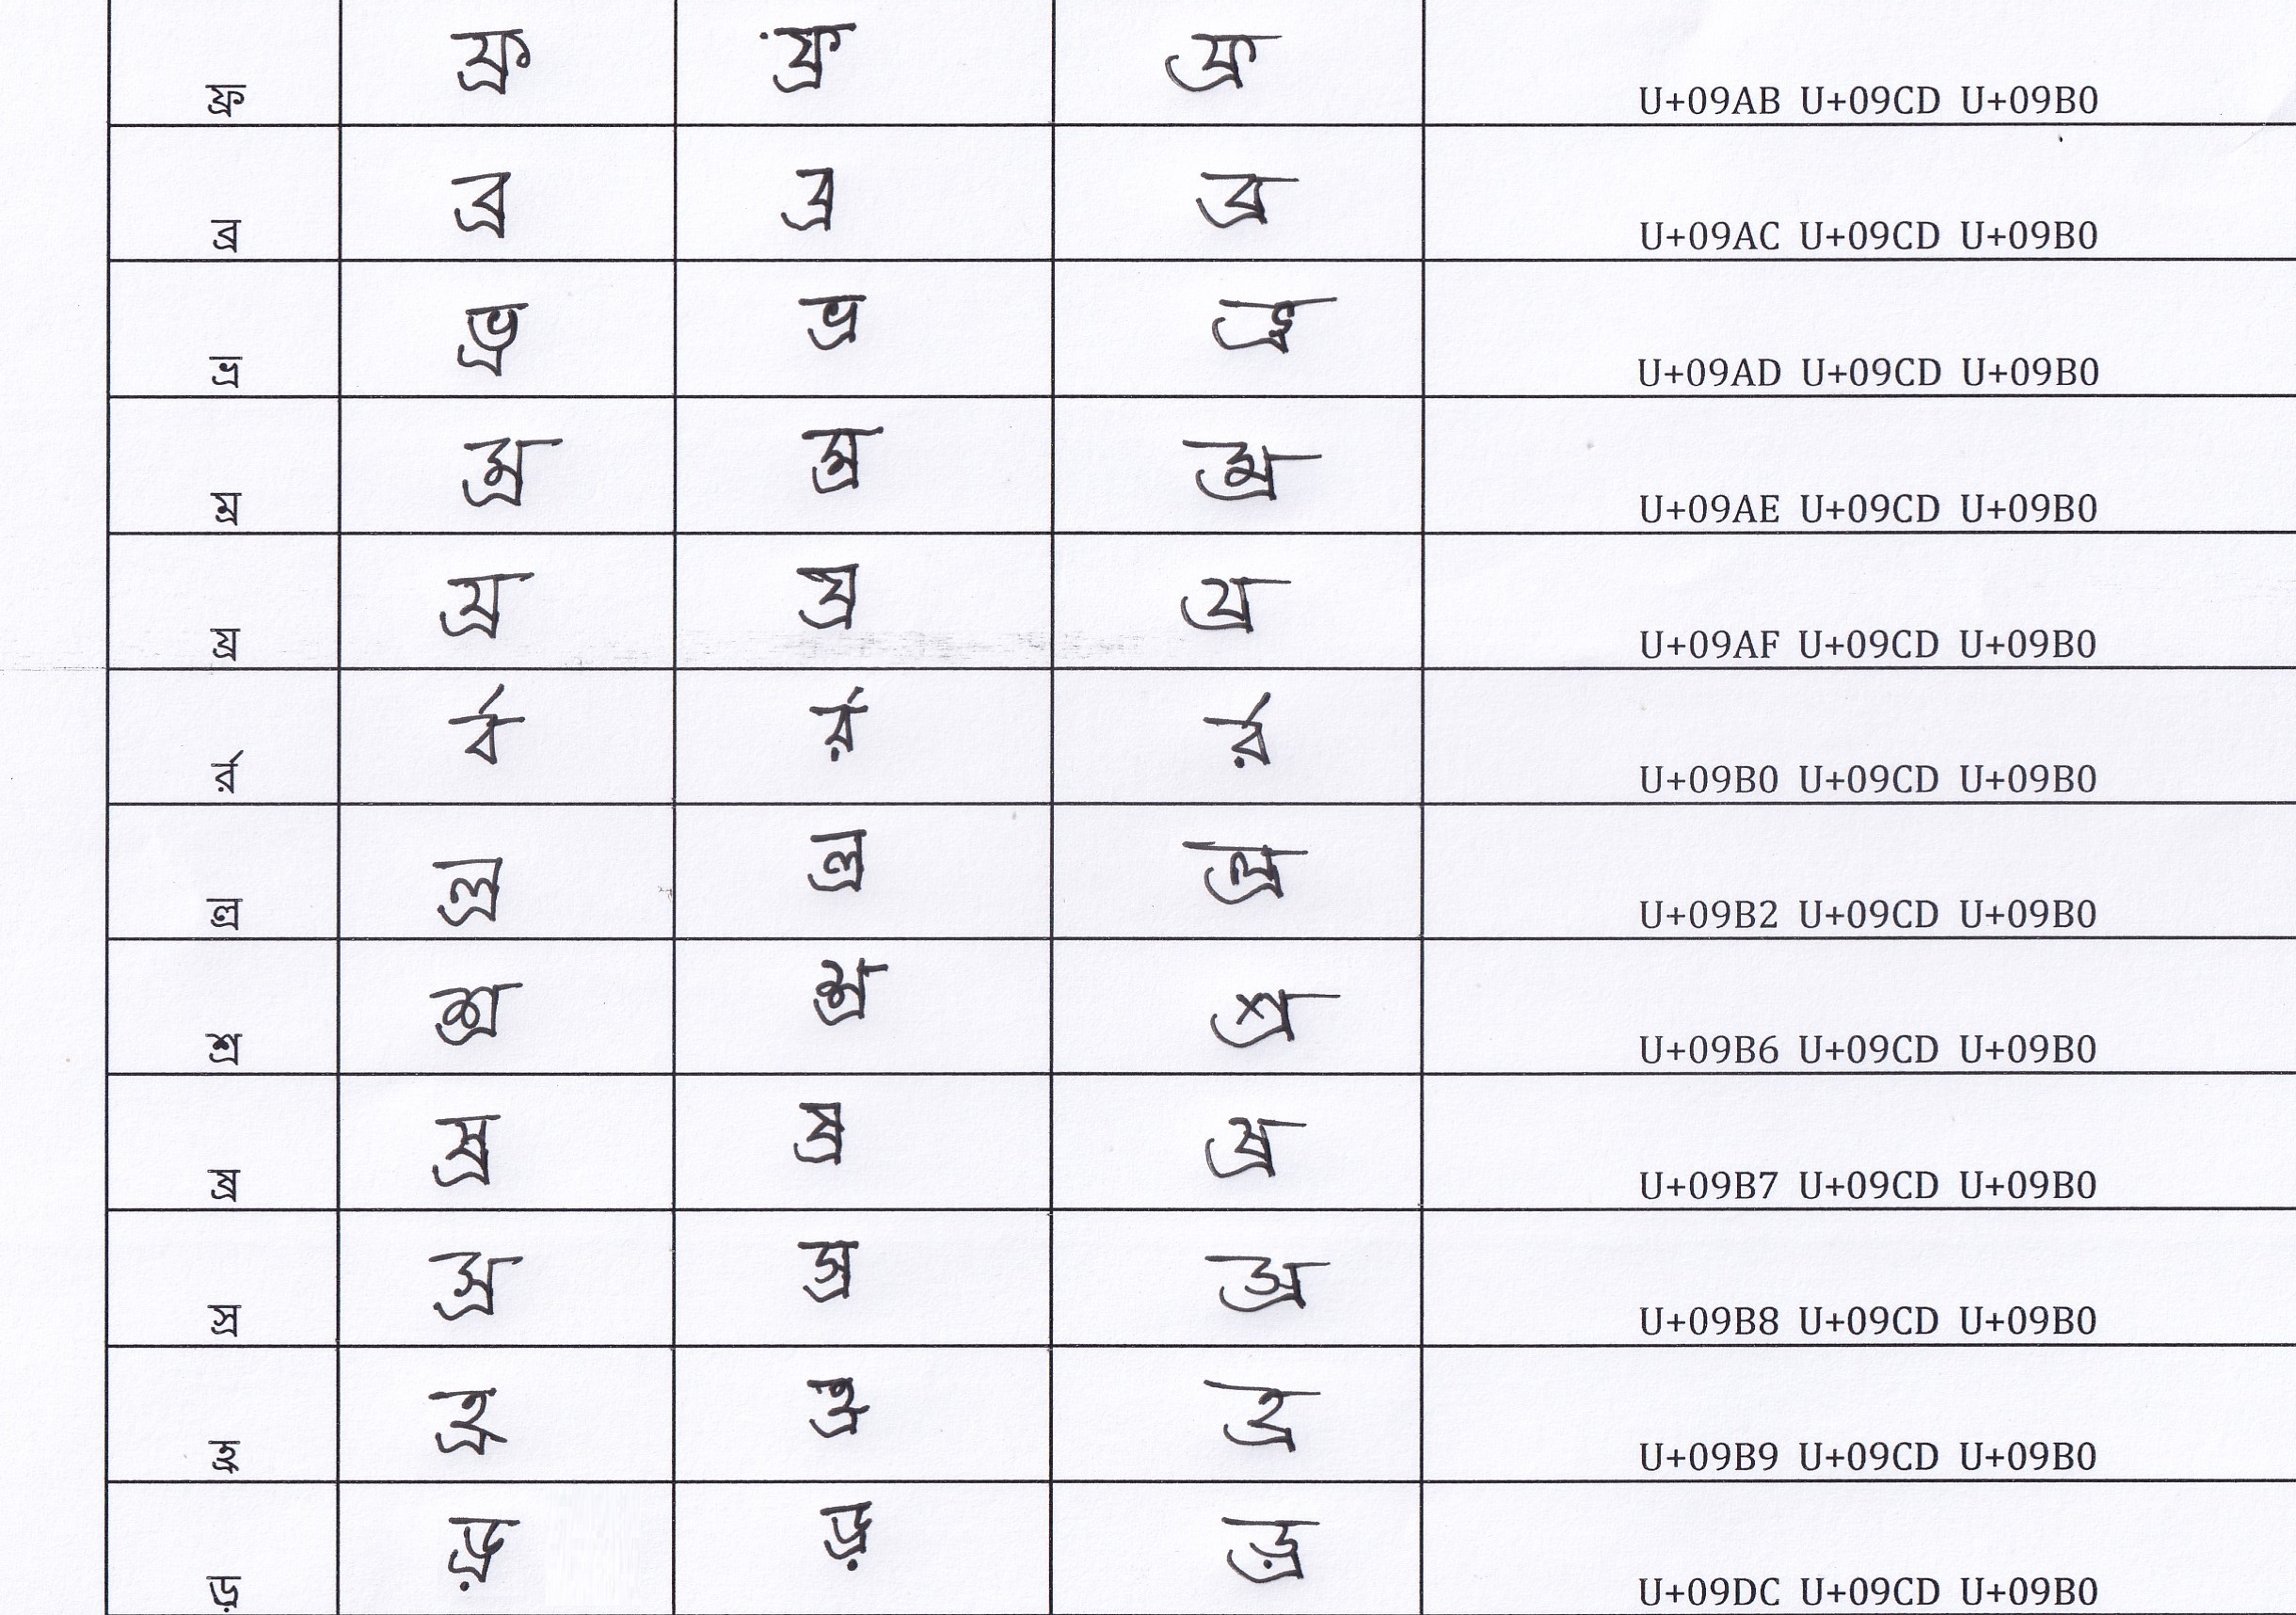 ফ্র ফ্র ফ্র ফ্র U+09AB U+09CD U+09B0
ব্র ব্র ব্র ব্র U+09AC U+09CD U+09B0
ভ্র ভ্র ভ্র ভ্র U+09AD U+09CD U+09B0
ম্র ম্র ম্র ম্র U+09AE U+09CD U+09B0
য্র য্র য্র য্র U+09AF U+09CD U+09B0
র্র র্ব র্র র্র U+09B0 U+09CD U+09B0
ল্র ল্র ল্র ল্র U+09B2 U+09CD U+09B0
শ্র শ্র শ্র শ্র U+09B6 U+09CD U+09B0
ষ্র ষ্র ষ্র ষ্র U+09B7 U+09CD U+09B0
স্র স্র স্র স্র U+09B8 U+09CD U+09B0
হ্র হ্র হ্র হ্র U+09B9 U+09CD U+09B0
ড়্র ড়্র ড়্র ড়্র U+09DC U+09CD U+09B0